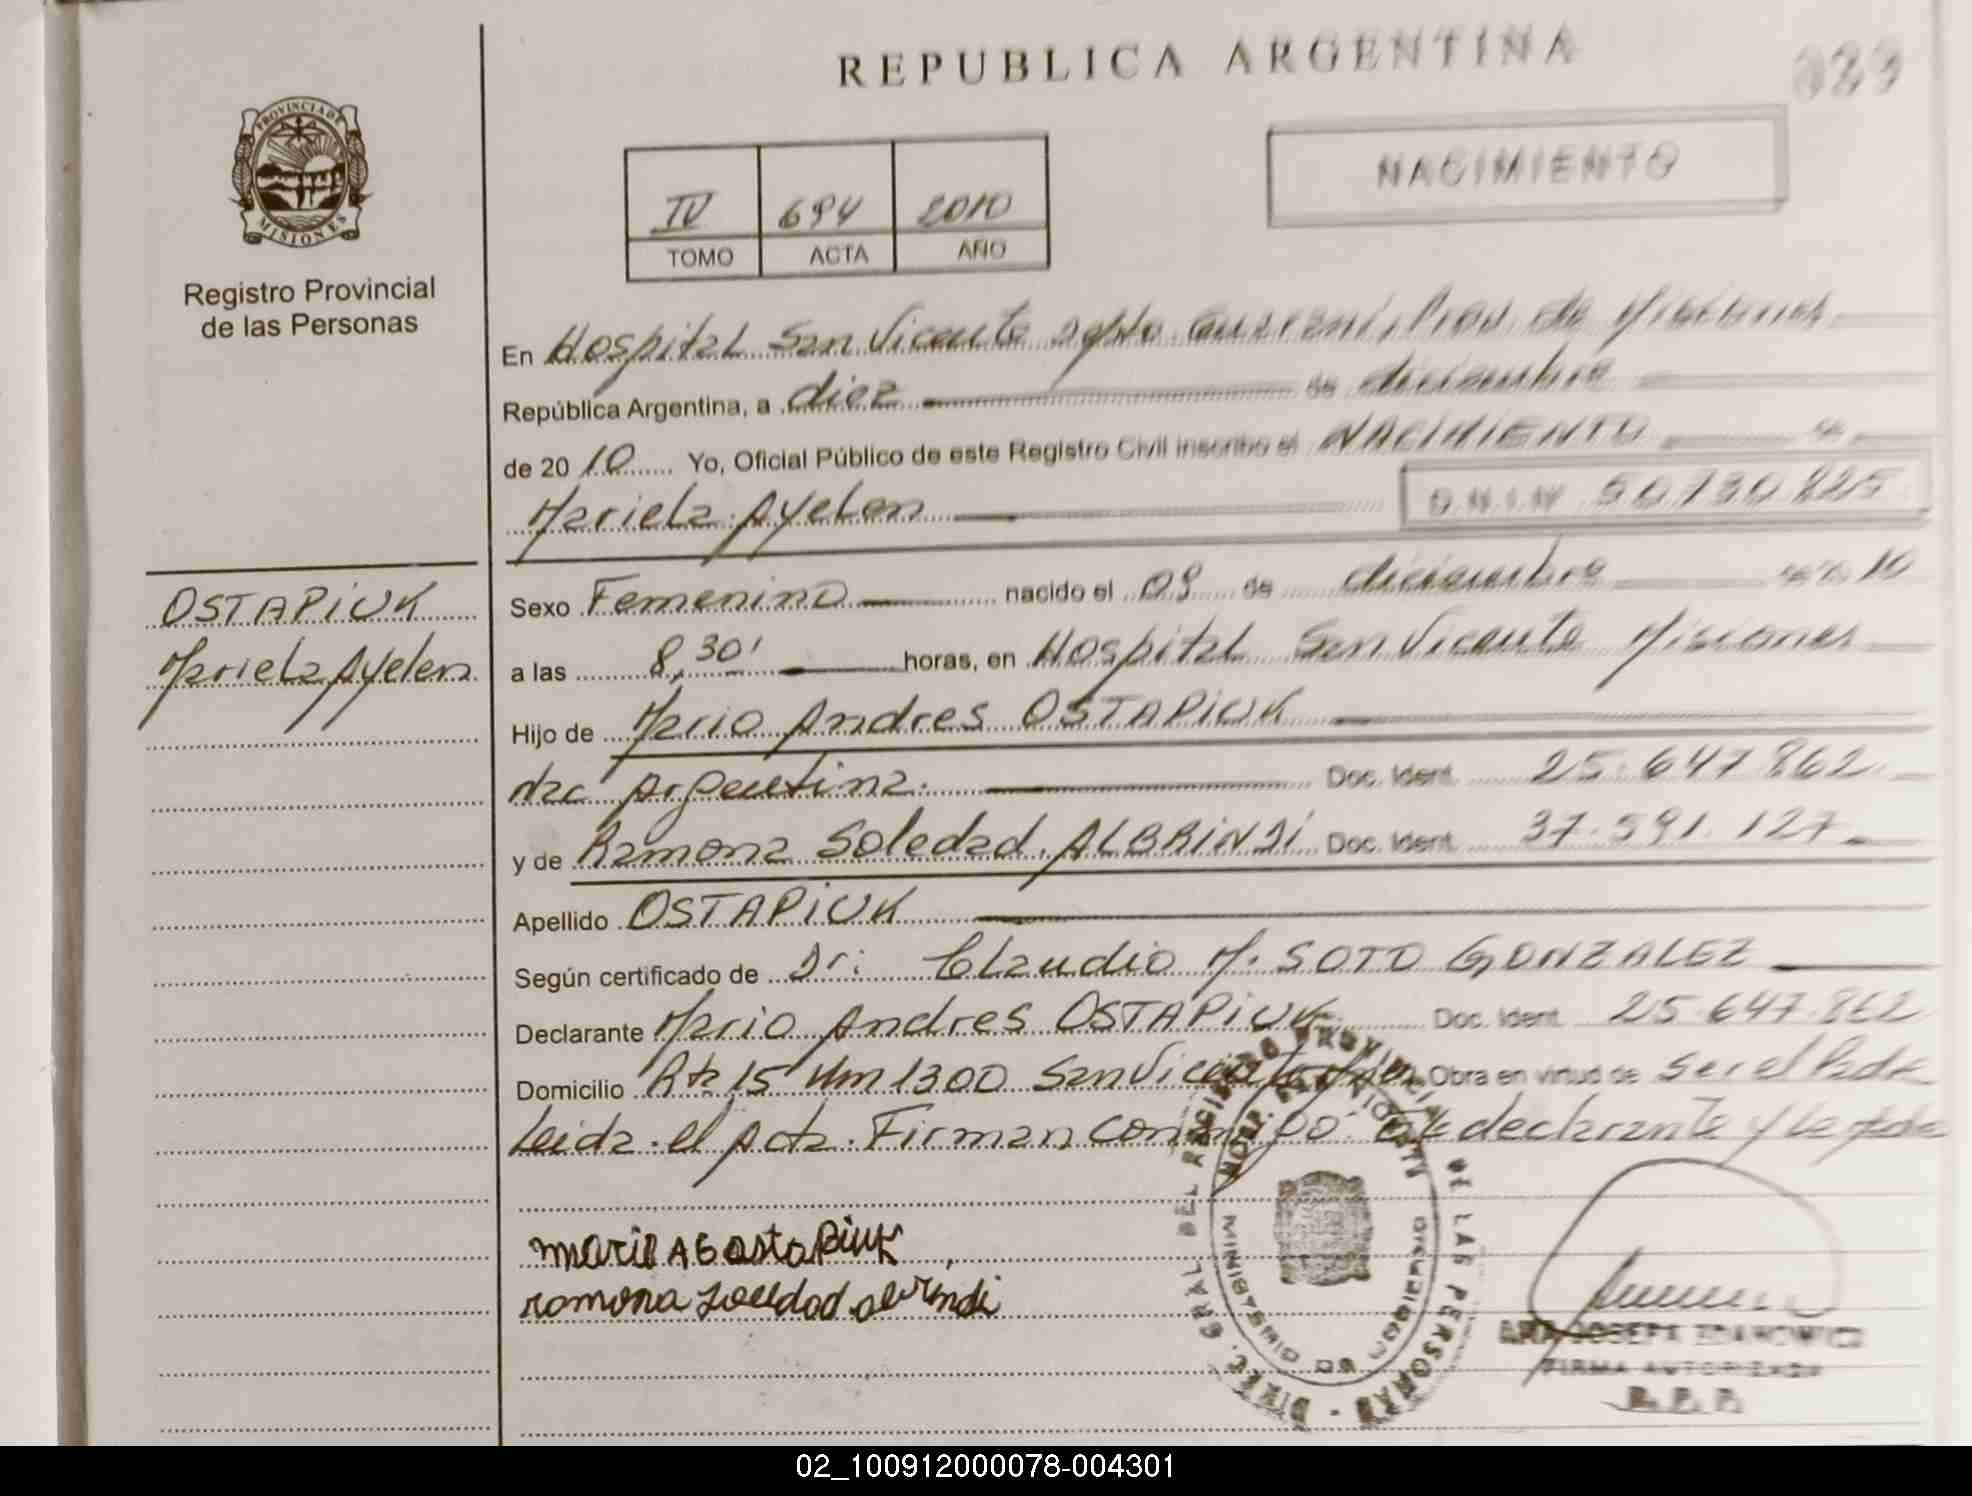 REPUBLICA ARGENTINA
029
PROVINCIA DE
MISIONES
Registro Provincial
de las Personas
IV 694 2010
TOMO ACTA AÑO
NACIMIENTO
En Hospital San Vicente Dpto Guarani, Prov. de Misiones
República Argentina, a diez de diciembre
de 20 10 Yo, Oficial Público de este Registro Civil inscribo el NACIMIENTO de
Mariela Ayelen
D.N.I.N 50.730.225
OSTAPIUK
Mariela Ayelen
Sexo Femenino nacido el 09 de diciembre 10
a las 8,30' horas, en Hospital San Vicente Misiones
Hijo de Mario Andres OSTAPIUK
Nac Argentina. Doc. Ident. 25.647.862
y de Ramona Soledad ALBRINDI Doc. Ident. 37.591.127
Apellido OSTAPIUK
Según certificado de Dr: Claudio M. SOTO GONZALEZ
Declarante Mario Andres OSTAPIUK Doc. Ident. 25.647.862
Domicilio Rta 15 Km 1300 San Vicente Obra en virtud de ser el Padre
Leida el Acta. Firman conmigo declarante y la Madre
Mario A Ostapiuk
ramona Soledad
DIREC. GRAL. DEL REGISTRO PROVINCIAL DE LAS PERSONAS
MINISTERIO DE GOBIERNO
FIRMA AUTORIZADA
R. P. P.
02_100912000078-004301